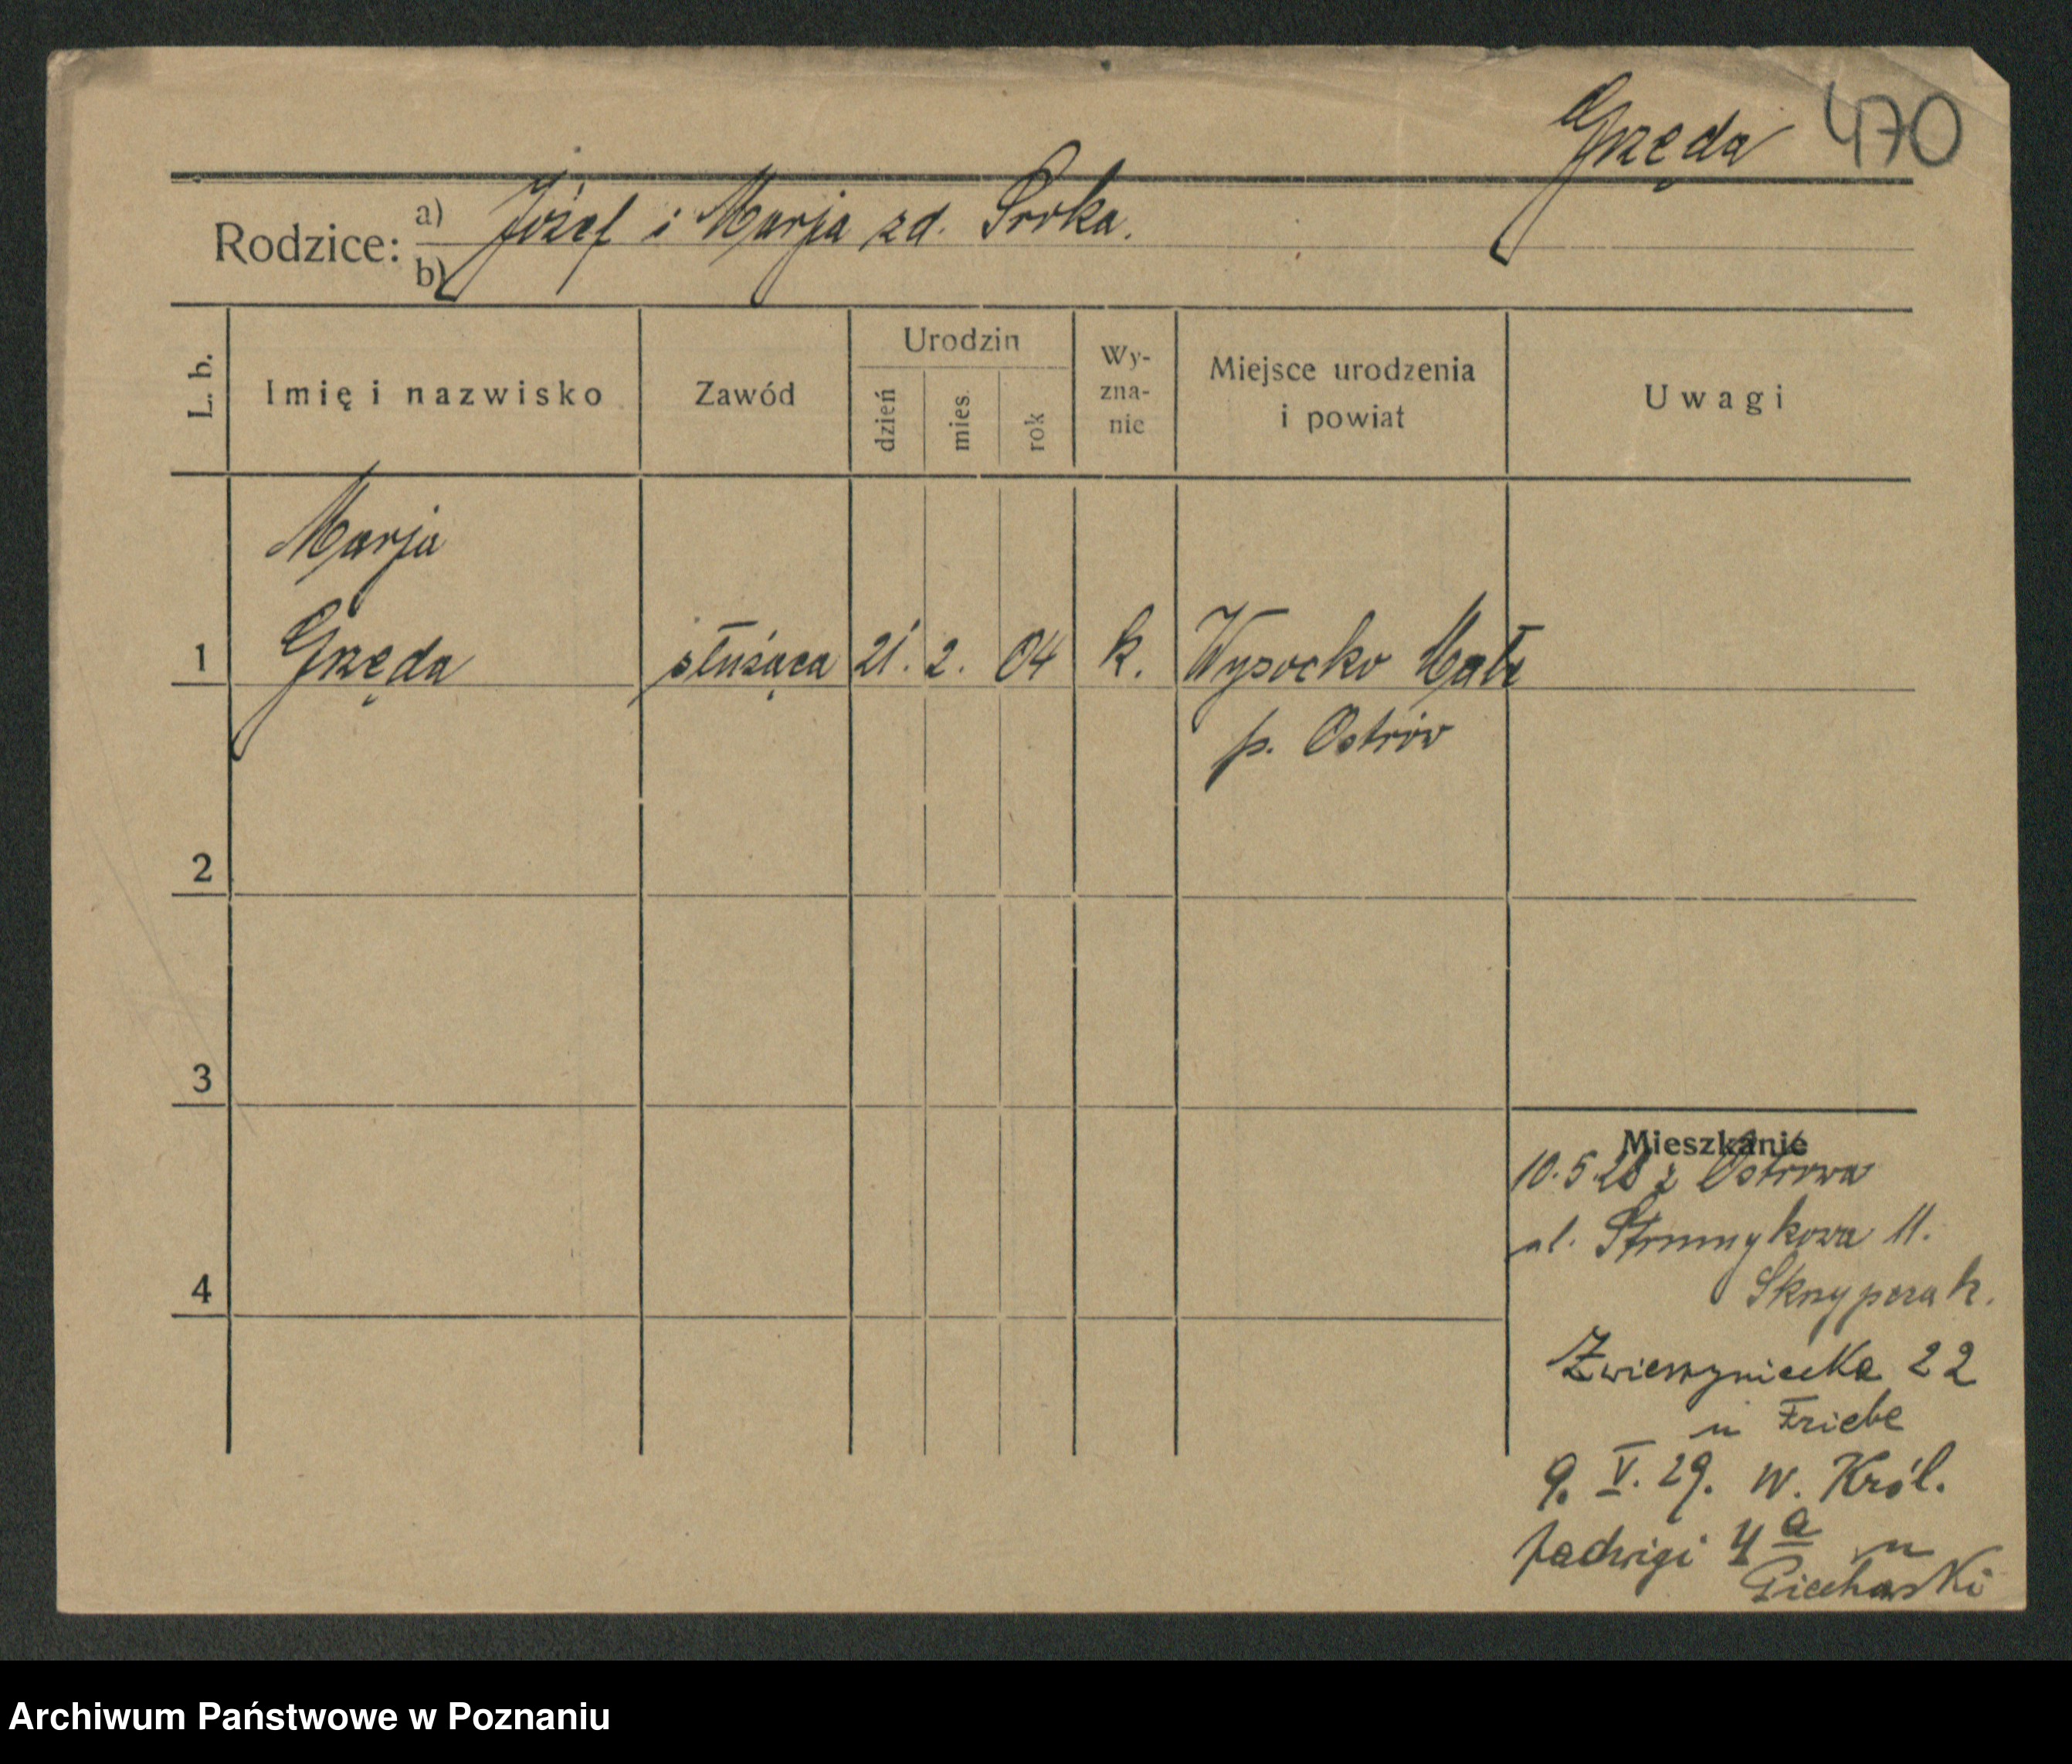 Grzęda 470
Rodzice: a) Józef i Marja zd. Sroka.
b)
L. b.
Imię i nazwisko
Zawód
Urodzin
dzień
mies.
rok
Wy-
zna-
nie
Miejsce urodzenia
i powiat
Uwagi
Marja
1 Grzęda służąca 21. 2. 04 k. Wysocko Małe
p. Ostrów
2
3
4
Mieszkanie
10.5.28 z Ostrowa
ul. Strumykowa 11.
Skrzypczak.
Zwierzyniecka 22
u Friebe
9. V. 29. W. Król.
Jadwigi 4a u
Archiwum Państwowe w Poznaniu